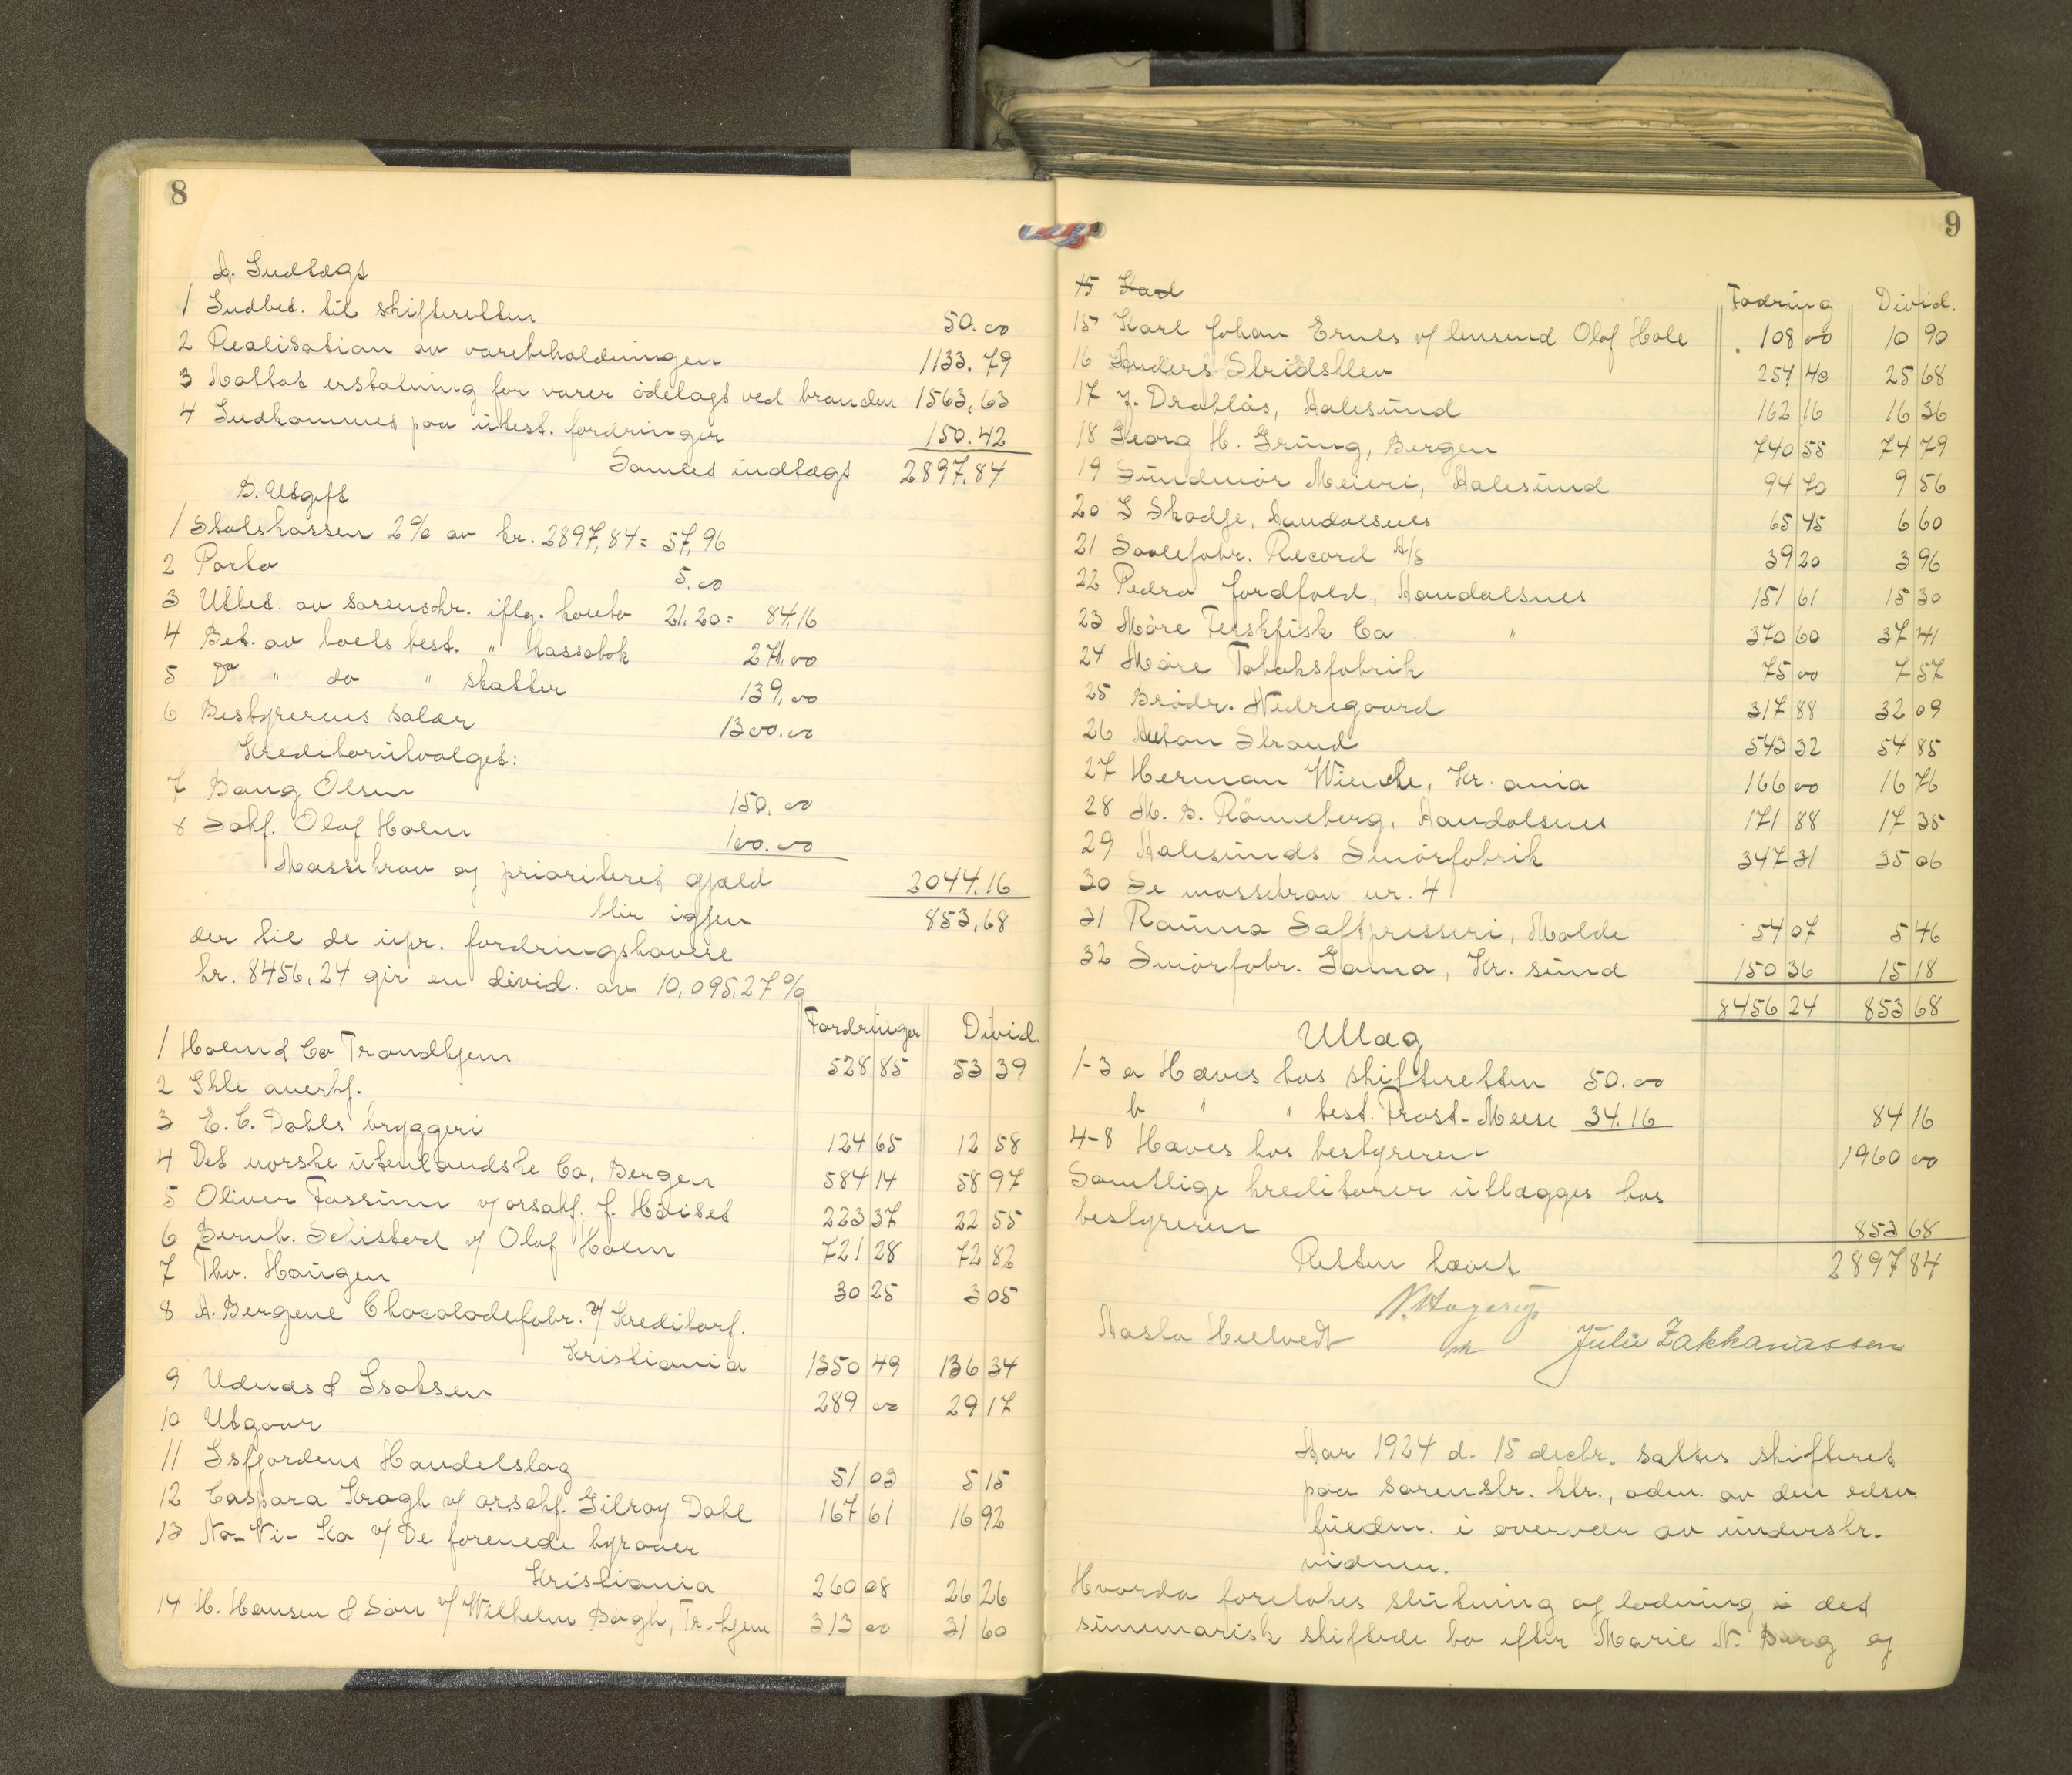 8
A. Indtægt
1 Indbet. til skifteretten 50.00
2 Realisation av varebeholdningen 1133.79
3 Mottat erstatning for varer ödelagt ved branden 1563,63
4 Indkommet paa utest. fordringer 150.42
Samlet indtægt 2897.84
B. Utgift
1 Statskassen 2% av kr. 2897,84 = 57,96
2 Porto 5.00
3 Utbet. av sorenskr. iflg. konto 21.20 = 84,16
4 Bet. av boets best. " kassabok 271.00
5 Do " do " skatter 139.00
6 Bestyrerens salær 1300.00
Kreditorutvalget:
7 Bang Olsen 150.00
8 Sakf. Olaf Holm 100.00
Massekrav og prioritert gjæld 2044.16
blir igjen 853,68
der til de upr. fordringshavere
kr. 8456,24 gir en divid. av 10,095,27%
Fordringer Divid.
1 Holm & Co Trondhjem 528 85 53 39
2 Ikke anerkj.
3 E. C. Dahls bryggeri 124 65 12 58
4 Det norske utenlandske Co, Bergen 584 14 58 97
5 Oliver Fossum v/ orsakf. J. Höiset 223 37 22 55
6 Bernh. Schistad v/ Olaf Holm 721 28 72 82
7 Thv. Haugen 30 25 3 05
8 A. Bergene Chocoladefabr. v/ Kreditorf.
Kristiania 1350 49 136 34
9 Udnæs & Isaksen 289 00 29 17
10 Utgaar
11 Isfjordens Handelslag 51 03 5 15
12 Caspara Krogh v/ o.r.sakf. Gilroy Dahl 167 61 16 92
13 No-Vi-Ka v/ De forenede byraaer
Kristiania 260 08 26 26
14 H. Hansen & Sön v/ Wilhelm Bögh, Tr.hjem 313 00 31 60
9
15 Karl
Fodring Divid.
15 Karl Johan Ernes v/ lensmd Olaf Hole 108 00 10 90
16 Anders Stridsklev 254 40 25 68
17 J. Drabløs, Aalesund 162 16 16 36
18 Georg H. Grung, Bergen 740 55 74 79
19 Sundmör Meieri, Aalesund 94 70 9 56
20 I Skodje, Aandalsnes 65 45 6 60
21 Saalefabr. Record A/S 39 20 3 96
22 Pedra Jordfald, Aandalsnes 151 61 15 30
23 Möre Ferskfisk Co " 370 60 37 41
24 Möre Tobaksfabrik 75 00 7 57
25 Brödr. Nedregaard 317 88 32 09
26 Anton Strand 543 32 54 85
27 Herman Wiencke, Kr.ania 166 00 16 76
28 M. B. Rönneberg, Aandalsnes 171 88 17 35
29 Aalesunds Smörfabrik 347 31 35 06
30 Se massekrav nr. 4
31 Rauma Saftpresseri, Molde 54 07 5 46
32 Smörfabr. Gama, Kr. sund 150 36 15 18
8456 24 853 68
Utlæg
1-3 a Hæves hos skifteretten 50.00
b " " best. Frost-Meese 34.16 84 16
4-8 Hæves hos bestyreren 1960 00
Samtlige kreditorer utlægges hos
bestyreren 853 68
Retten hævet 2897 84
N. Hagerup
Aasta Helvedt Julie Zakkariassen
Aar 1924 d. 15 decbr. sattes skifteret
paa sorenskr. ktr., adm. av den edsv.
fuldm. i overvær av underskr.
vidner.
Hvorda foretokes slutning og lodning i det
summarisk skiftede bo efter Marie N. Berg og